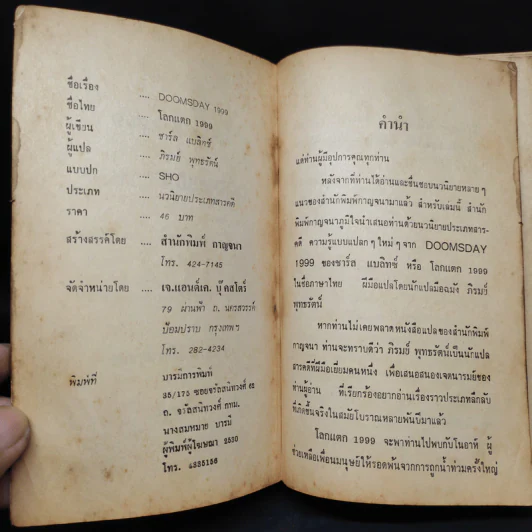 ชื่อเรื่อง .... DOOMSDAY 1999
ชื่อไทย .... โลกแตก 1999
ผู้เขียน .... ชาร์ล แบลิทซ์
ผู้แปล .... ภิรมย์ พุทธรัตน์
แบบปก .... SHO
ประเภท .... นวนิยายประเภทสารคดี
ราคา .... 46 บาท
สร้างสรรค์โดย .... สำนักพิมพ์ กาญจนา
โทร. 424-7145
จัดจำหน่ายโดย .... เจ.แอนด์เค. บุ๊คสโตร์
79 ผ่านฟ้า ถ. นครสวรรค์
ป้อมปราบ กรุงเทพฯ
โทร. 282-4234
พิมพ์ที่ บารมีการพิมพ์
35/175 ซอยจรัลสนิทวงศ์ 62
ถ. จรัลสนิทวงศ์ กทม.
นางสมหมาย บารมี
ผู้พิมพ์ผู้โฆษณา 2530
โทร. 4335156
คำนำ
แด่ท่านผู้มีอุปการคุณทุกท่าน
หลังจากที่ท่านได้อ่านและชื่นชอบนวนิยายหลาย ๆ
แนวของสำนักพิมพ์กาญจนามาแล้ว สำหรับเล่มนี้ สำนัก
พิมพ์กาญจนาภูมิใจนำเสนอท่านด้วยนวนิยายประเภทสาร-
คดี ความรู้แบบแปลก ๆ ใหม่ ๆ จาก DOOMSDAY
1999 ของชาร์ล แบลิทซ์ หรือ โลกแตก 1999
ในชื่อภาษาไทย ฝีมือแปลโดยนักแปลมือฉมัง ภิรมย์
พุทธรัตน์
หากท่านไม่เคยพลาดหนังสือแปลของสำนักพิมพ์
กาญจนา ท่านจะทราบดีว่า ภิรมย์ พุทธรัตน์เป็นนักแปล
สารคดีที่ฝีมือเยี่ยมคนหนึ่ง เพื่อเสนอสนองเจตนารมย์ของ
ท่านผู้อ่าน ที่เรียกร้องอยากอ่านเรื่องราวประเภทลึกลับ
ที่เกิดขึ้นจริงในสมัยโบราณหลายพันปีมาแล้ว
โลกแตก 1999 จะพาท่านไปพบกับโนอาห์ ผู้
ช่วยเหลือเพื่อนมนุษย์ให้รอดพ้นจากการถูกน้ำท่วมครั้งใหญ่